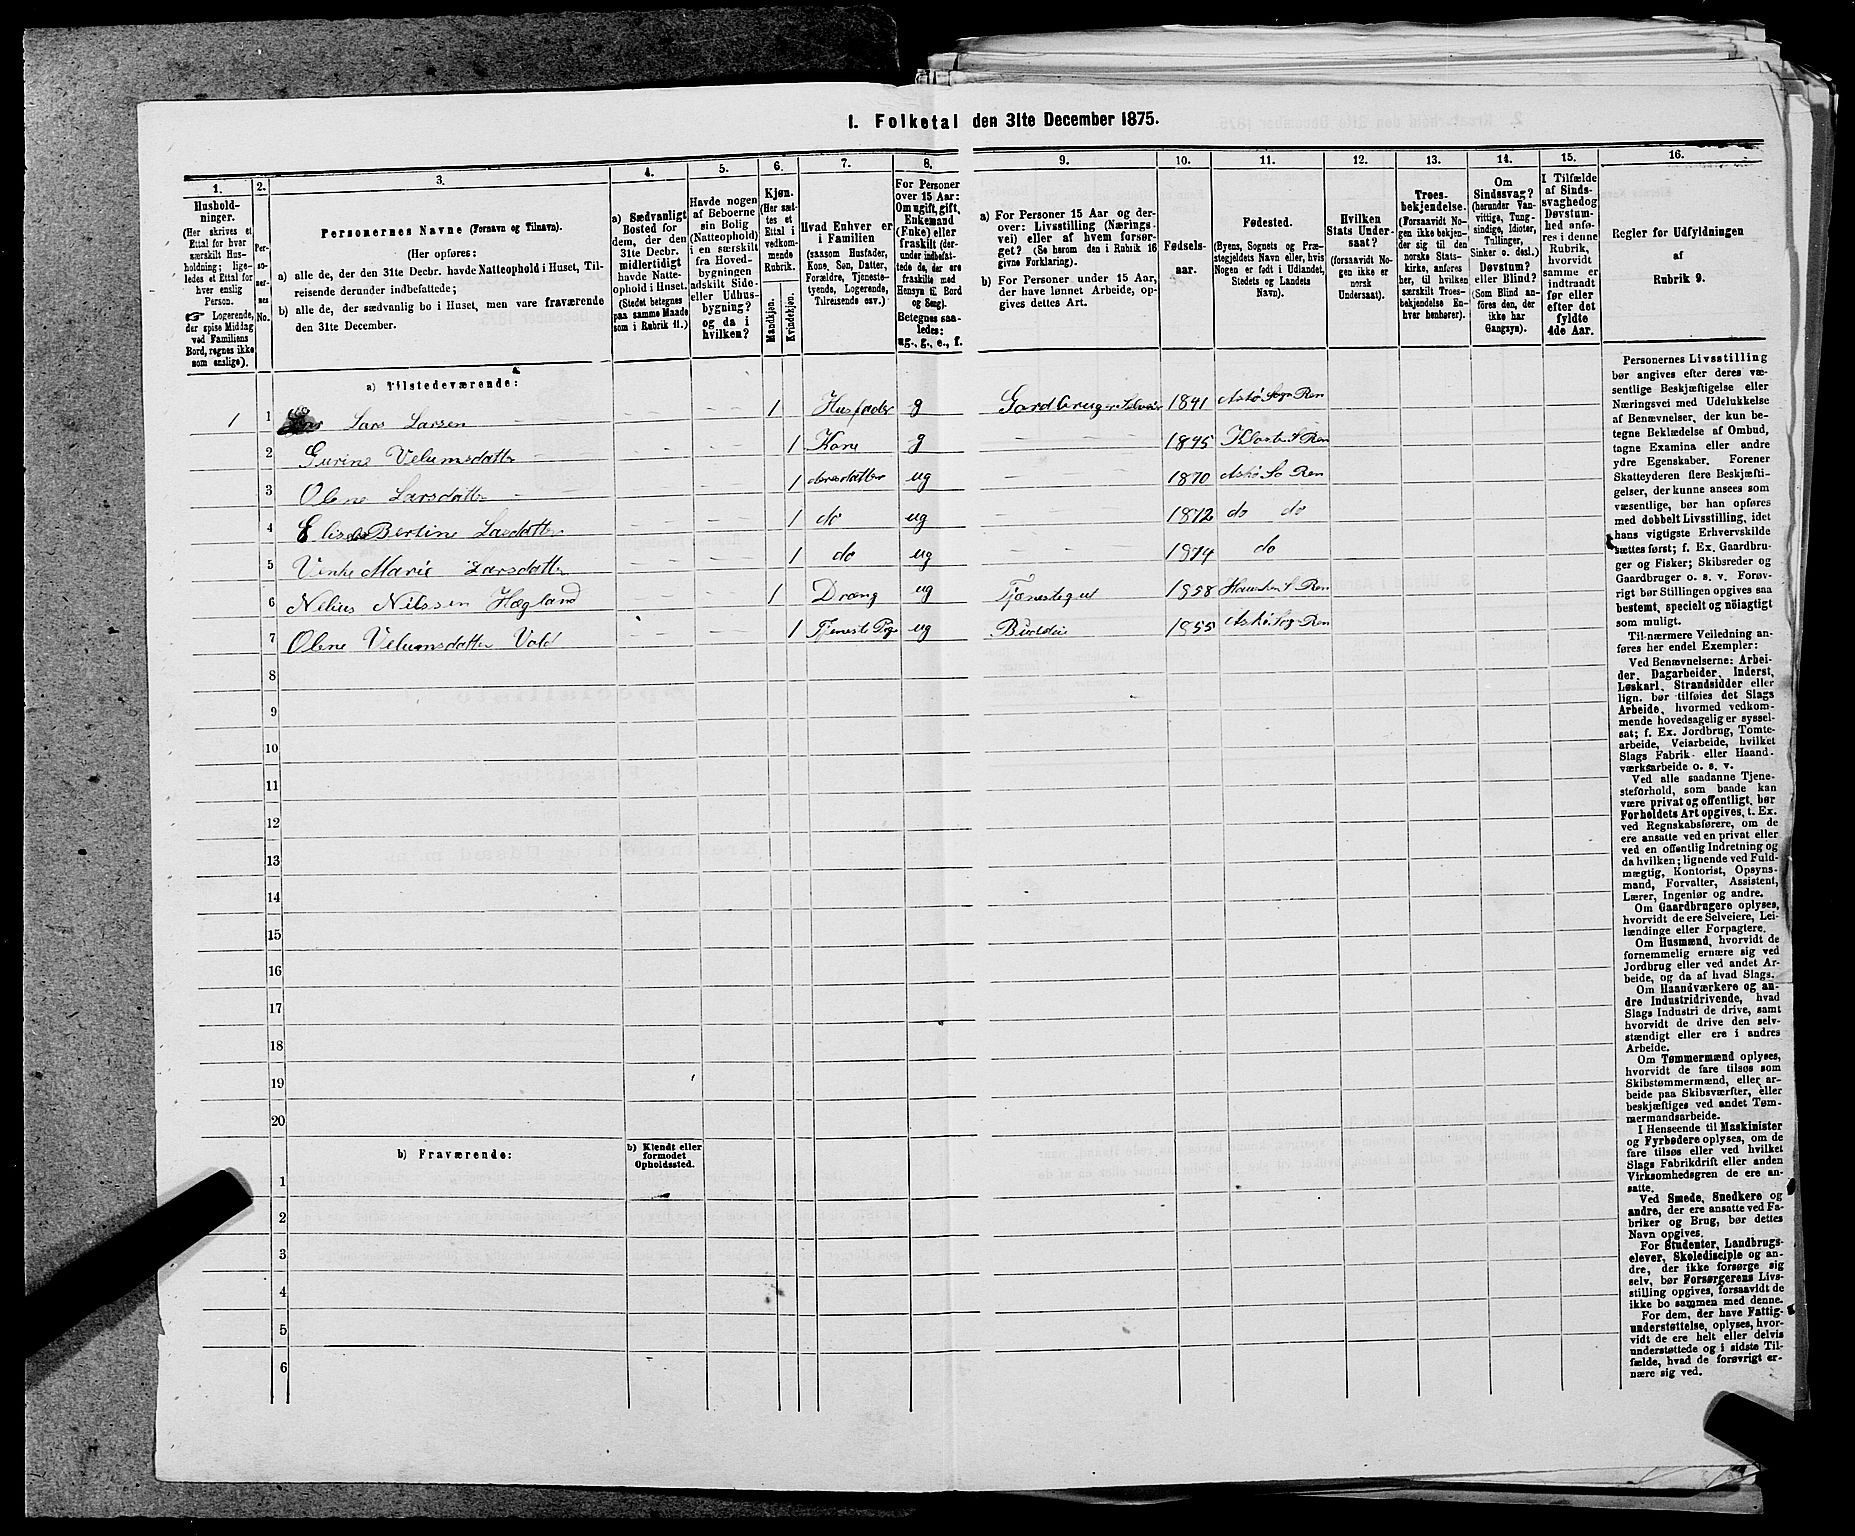 1. Folketal den 31te December 1875.
1.
Hushold-
ninger.
(Her skrives et
Ettal for hver
særskilt Hus-
holdning; lige-
ledes et Ettal for
hver enslig
Person.
☞ Logerende,
der spise Middag
ved Familiens
Bord, regnes ikke
som enslige).
2.
Per-
so-
ner-
nes
No.
3.
Personernes Navne (Fornavn og Tilnavn).
(Her opføres:
a) alle de, der den 31te Decbr. havde Natteophold i Huset, Til-
reisende derunder indbefattede;
b) alle de, der sædvanlig bo i Huset, men vare fraværende
den 31te December.
4.
a) Sædvanligt
Bosted for
dem, der den
31te Decbr.
midlertidigt
havde Natte-
ophold i Huset.
(Stedet betegnes
paa samme Maade
som i Rubrik 11.)
5.
Havde nogen
af Beboerne
sin Bolig
(Natteophold)
i en særskilt
fra Hoved-
bygningen
adskilt Side-
eller Udhus-
bygning?
og da i
hvilken?
6.
Kjøn.
(Her sæt-
tes et
Ettal i
vedkom-
mende
Rubrik.
Mandkjøn.
Kvindekjøn.
7.
Hvad Enhver er
i Familien
(saasom Husfader,
Kone, Søn, Datter,
Forældre, Tjeneste-
tyende, Logerende,
Tilreisende osv.)
8.
For Personer
over 15 Aar:
Om ugift, gift,
Enkemand
(Enke) eller
fraskilt (der-
under indbefat-
tede de, der ere
fraskilte med
Hensyn til Bord
og Seng).
Betegnes saa-
ledes:
ug., g., e., f.
9.
a) For Personer 15 Aar og der-
over: Livsstilling (Nærings-
vei) eller af hvem forsør-
get? (Se herom den i Rubrik 16
givne Forklaring).
b) For Personer under 15 Aar,
der have lønnet Arbeide, op-
gives dettes Art.
10.
Fødsels-
aar.
11.
Fødested.
(Byens, Sognets og Præ-
stegjeldets Navn eller, hvis
Nogen er født i Udlandet,
Stedets og Landets
Navn).
12.
Hvilken
Stats Under-
saat?
(forsaavidt No-
gen ikke er
norsk
Undersaat).
13.
Troes-
bekjendelse.
(Forsaavidt No-
gen ikke bekjen-
der sig til den
norske Stats-
kirke, anføres
her, til hvilken
særskilt Troes-
bekjendelse En-
hver henhører).
14.
Om
Sindssvag?
(herunder Van-
vittige, Tung-
sindige, Idioter,
Tullinger,
Sinker o. desl.)
Døvstum?
eller Blind?
(Som Blind an-
føres den, der
ikke har
Gangsyn).
15.
I Tilfælde
af Sinds-
svaghed og
Døvstum-
hed anfø-
res i denne
Rubrik,
hvorvidt
samme er
indtraadt
før eller
efter det
fyldte
4de Aar.
16.
Regler for Udfyldningen
af
Rubrik 9.
a) Tilstedeværende:
1 1 Lars Larsen 1 Husfader g Gardbruger Selveier 1841 Askø Sogn Ren
2 Gurine Velumsdatter 1 Kone g 1845 Ren
3 Olene Larsdatter 1 deresdatter ug 1870 Askø So Ren
4 Bertine Larsdatter 1 do ug 1872 do do
5 Marie Larsdatter 1 do ug 1874 do
6 Nelius Nilssen Hægland 1 Dræng ug Tjenestegut 1858 Ren
7 Olene Velumsdatter 1 Tjeneste Pige ug Budeie 1855 Askø Sogn Ren
8
9
10
11
12
13
14
15
16
17
18
19
20
b) Fraværende:
b) Kjendt eller
formodet
Opholdssted.
1
2
3
4
5
6
Personernes Livsstilling
bør angives efter deres væ-
sentlige Beskjæftigelse eller
Næringsvei med Udelukkelse
af Benævnelser, der kun be-
tegne Beklædelse af Ombud,
tagne Examina eller andre
ydre Egenskaber. Forener
Skatteyderen flere Beskjæfti-
gelser, der kunne ansees som
væsentlige, bør han opføres
med dobbelt Livsstilling, idet
hans vigtigste Erhvervskilde
sættes først; f. Ex. Gaardbru-
ger og Fisker; Skibsreder og
Gaardbruger o. s. v. Forøv-
rigt bør Stillingen opgives saa
bestemt, specielt og nøiagtigt
som muligt.
Til nærmere Veiledning an-
føres her endel Exempler:
Ved Benævnelserne: Arbei-
der, Dagarbeider, Inderst,
Løskarl, Strandsidder eller
lign. bør tilføies det Slags
Arbeide, hvormed vedkom-
mende hovedsagelig er syssel-
sat; f. Ex. Jordbrug, Tomte-
arbeide, Veiarbeide, hvilket
Slags Fabrik- eller Haand-
værksarbeide o. s. v.
Ved alle saadanne Tjene-
steforhold, som baade kan
være privat og offentligt, bør
Forholdets Art opgives, t. Ex.
ved Regnskabsførere, om de
ere ansatte ved en privat eller
ved en offentlig Indretning og
da hvilken; lignende ved Fuld-
mægtig, Kontorist, Opsyns-
mand, Forvalter, Assistent,
Lærer, Ingeniør og andre.
Om Gaardbrugere oplyses,
hvorvidt de ere Selveiere, Lei-
lændinge eller Forpagtere.
Om Husmænd, hvorvidt de
fornemmelig ernære sig ved
Jordbrug eller ved andet Ar-
beide, og da af hvad Slags.
Om Haandværkere og an-
dre Industridrivende, hvad
Slags Industri de drive, samt
hvorvidt de drive den selv-
stændigt eller ere i andres
Arbeide.
Om Tømmermænd oplyses,
hvorvidt de fare tilsøs som
Skibstømmermænd, eller ar-
beide paa Skibsværfter, eller
beskjæftiges ved andet Tøm-
mermandsarbeide.
I Henseende til Maskinister
og Fyrbødere oplyses, om de
fare tilsøs eller ved hvilket
Slags Fabrikdrift eller anden
Virksomhedsgren de ere an-
satte.
Ved Smede, Snedkere og
andre, der ere ansatte ved Fa-
briker og Brug, bør dettes
Navn opgives.
For Studenter, Landbrugs-
elever, Skoledisciple og an-
dre, der ikke forsørge sig
selv, bør Forsørgerens Livs-
stilling opgives, forsaavidt de
ikke bo sammen med denne.
For dem, der have Fattig-
understøttelse, oplyses, hvor-
vidt de ere helt eller delvis
understøttede og i sidste Til-
fælde, hvad de forøvrigt er-
nære sig ved.